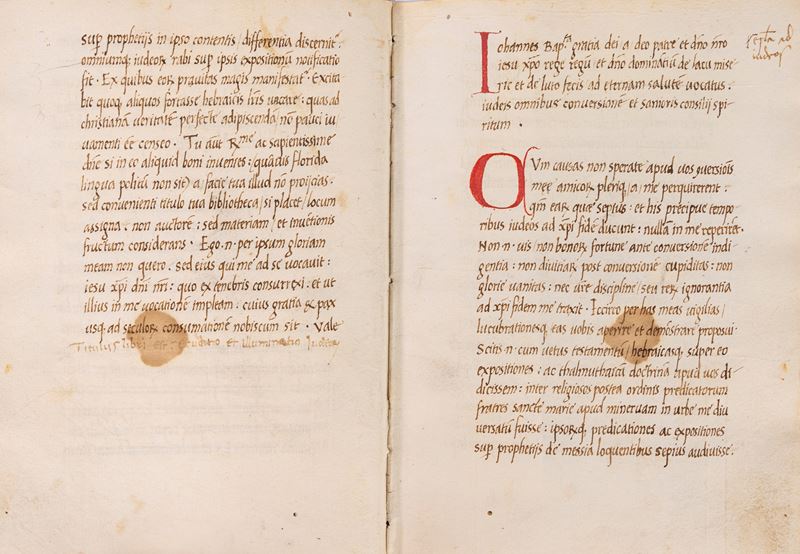 sup prophetijs in ipso contentis / differentia discernit.
omniumq; iudeor rabi sup ipsis expositionũ notificatio
sit. Ex quibus eor prauitas magis manifestat. Excita
bit quoq; aliquos fortasse hebraicis lris uacare: quas ad
christianam veritatẽ perfecte adipiscendã nõ pauci iu
uamenti eẽ censeo. Tu aũt Rme ac sapientissime
dñe si in eo aliquid boni inuenies: quãuis florida
lingua politũ non sit) a facie tua illud nõ proijcias.
sed convenienti titulo tua bibliotheca / si placet / locum
assigna. non auctorẽ: sed materiam / et inuentionis
fructum considerans. Ego.n.per ipsum gloriam
meam non quero. sed eius qui me ad se vocauit:
iesu xpi dñi nri: quo ex tenebris consurrexi: et ut
illius in me vocationẽ impleam: cuius gratia & pax
usq; ad seculor consumationẽ nobiscum sit. Vale
Titulus libri est: eruditio et illuminatio
Iohannes Bapta gratia dei a deo patre et dño nro
iesu xpo rege regũ et dño dominãtiũ de lacu mise
rie et de luto fecis ad eternam salutẽ vocatus.
iudeis omnibus conversionẽ et sanioris consilij spi
ritum.
QVm causas non sperate apud vos conuersiois
mee amicor pleriq; a me perquirerent.
qm ear quae sepius: et his precipue tempo
ribus iudeos ad xpi fidẽ ducunt: nullã in me reperirẽt.
Non.n.vis non bonor fortune ante conversionẽ indi
gentia: non diuitiar post conversionẽ cupiditas: non
glorie vanitas: nec discipline / seu rer ignorantia
ad xpi fidem me traxit. Iccirco per has meas vigilias /
lucubrationesq; eas vobis aperire et demõstrare proposui
Scitis.n.cum vetus testamentũ / hebraicasq; super eo
expositiones: ac thalmuthicam doctrina apud vos di
dicissem: inter religiosos postea ordinis predicatorum
fratres sancte marie apud mineruam in urbe me diu
versatũ fuisse: ipsorq; predicationes ac expositiones
sup prophetijs de messia loquentibus sepius audiuisse.